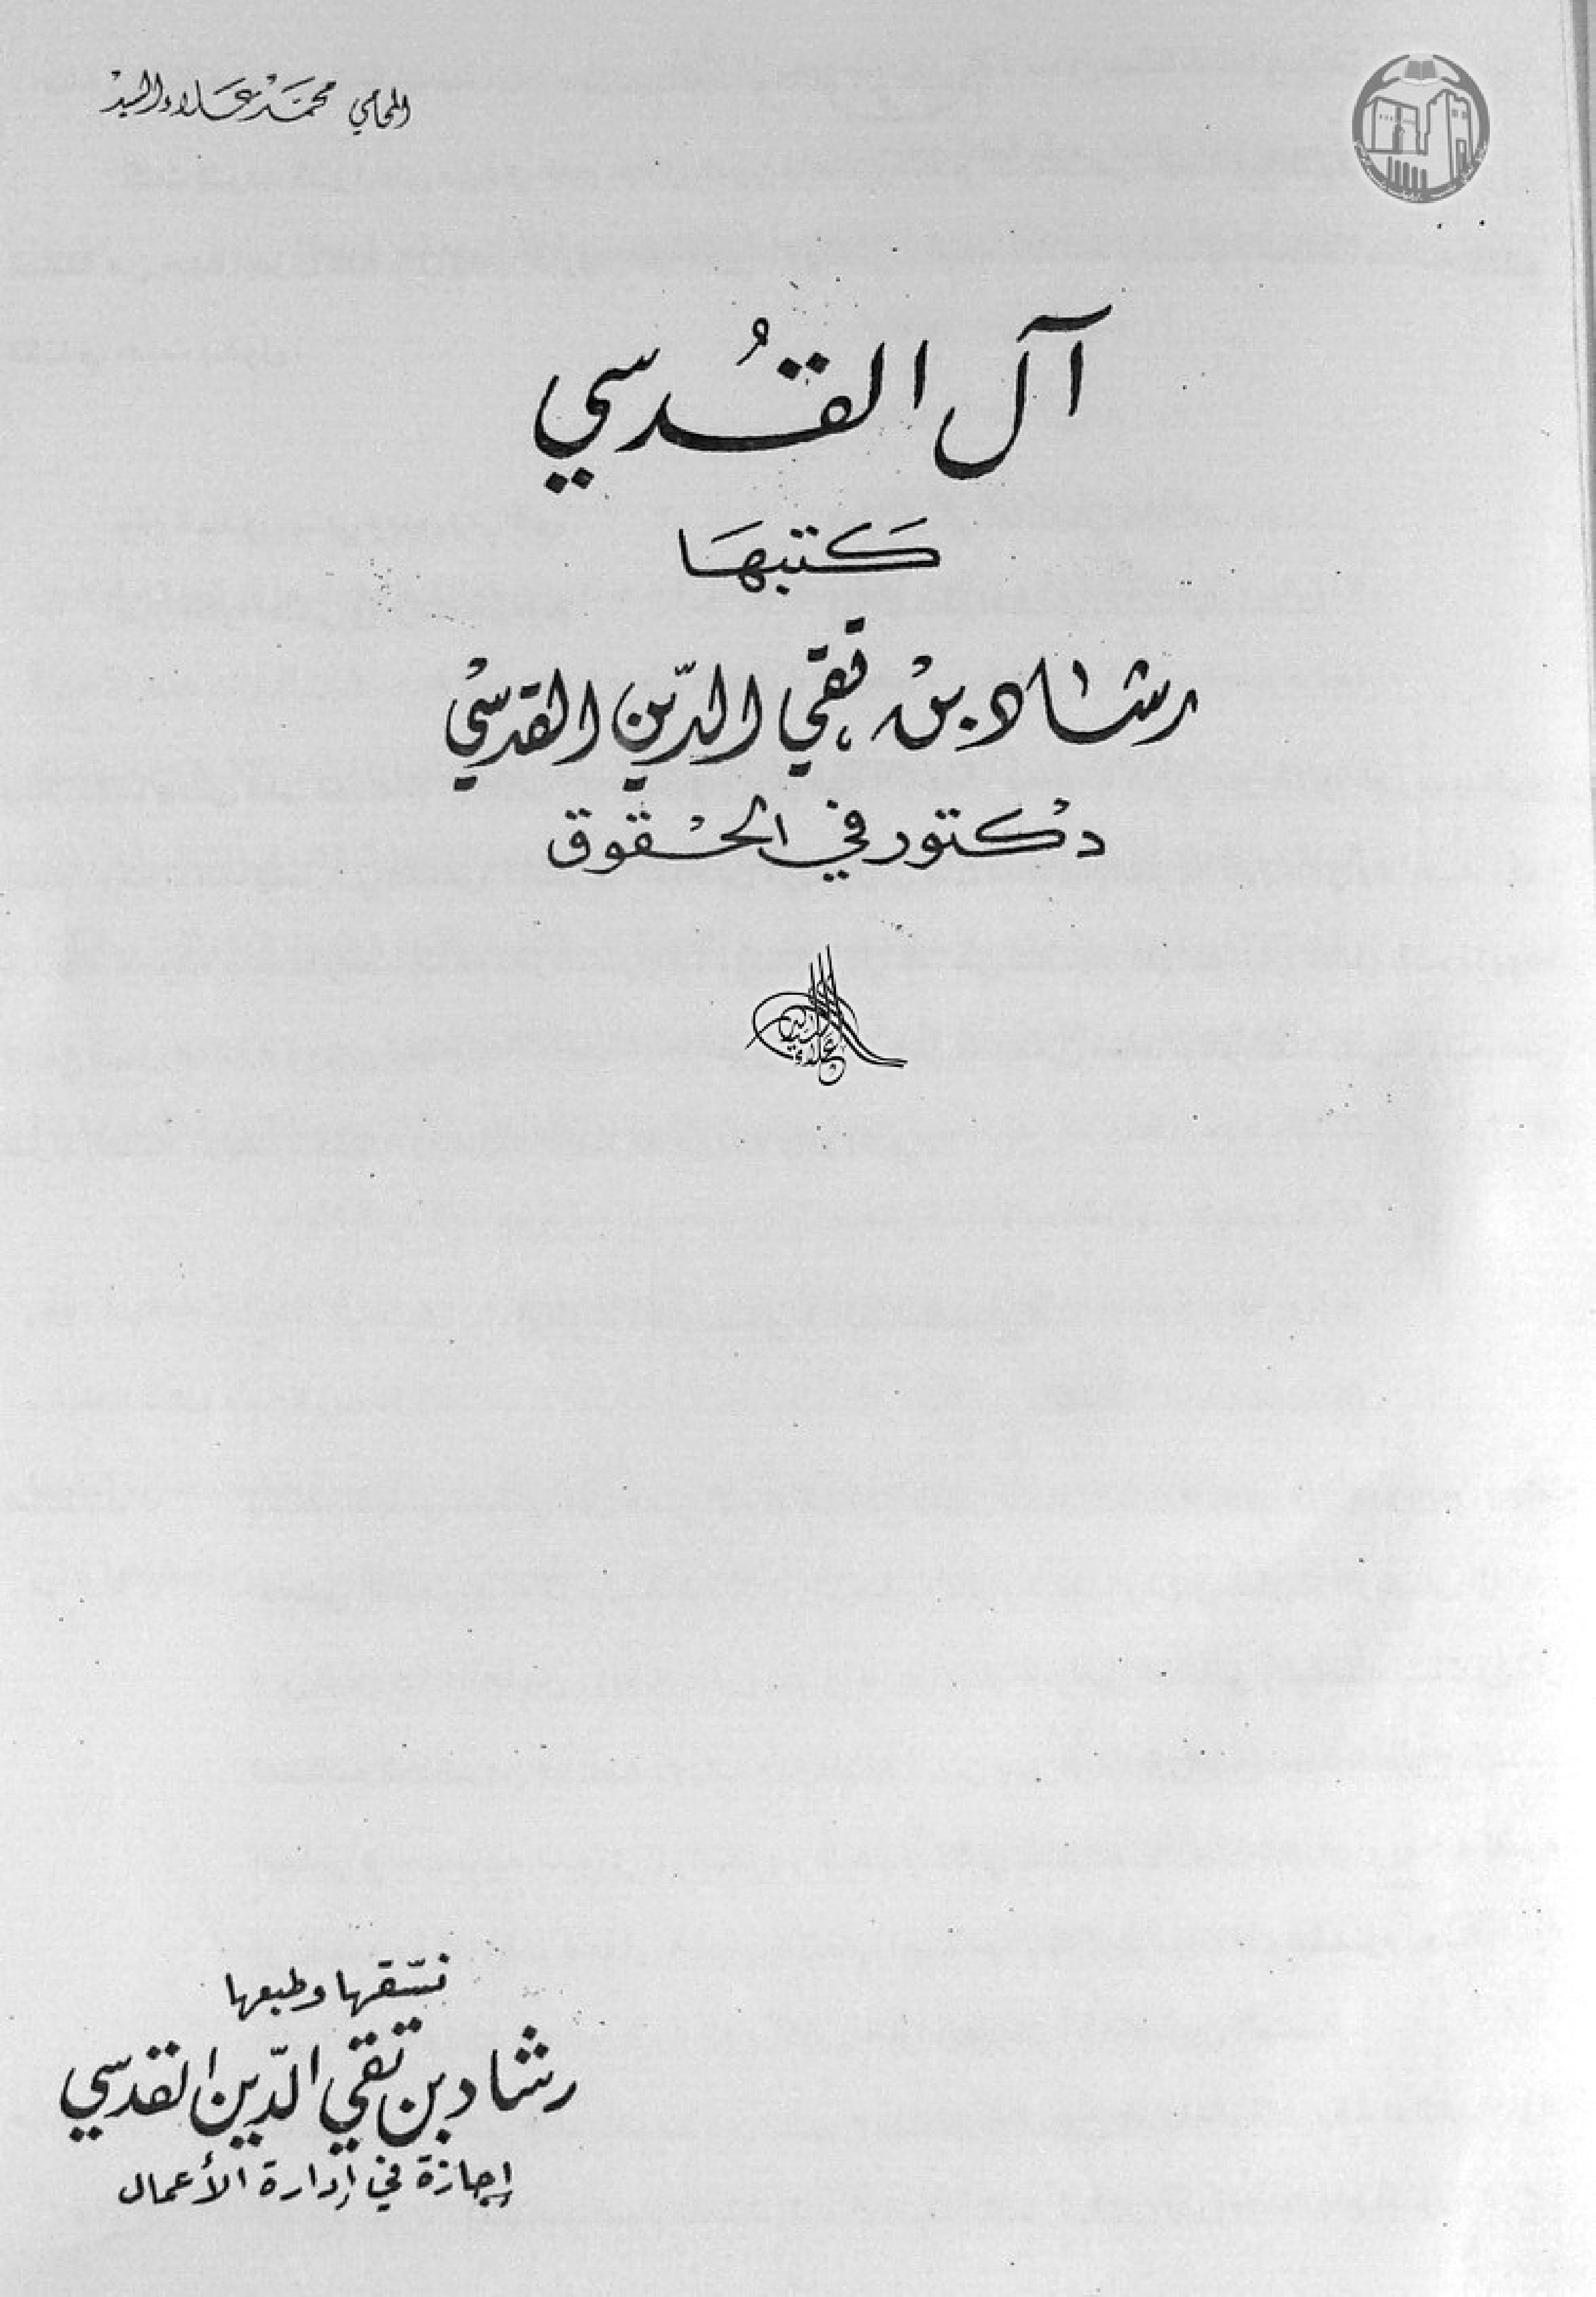 المحامي محمد علاء السيد
آل القُدسي
كَتبهَا
رشاد بن تقي الدّين القدسي
دكتور في الحقوق
نسّقها وطبعها
رشاد بن تقي الدّين القدسي
إجازة في إدارة الأعمال